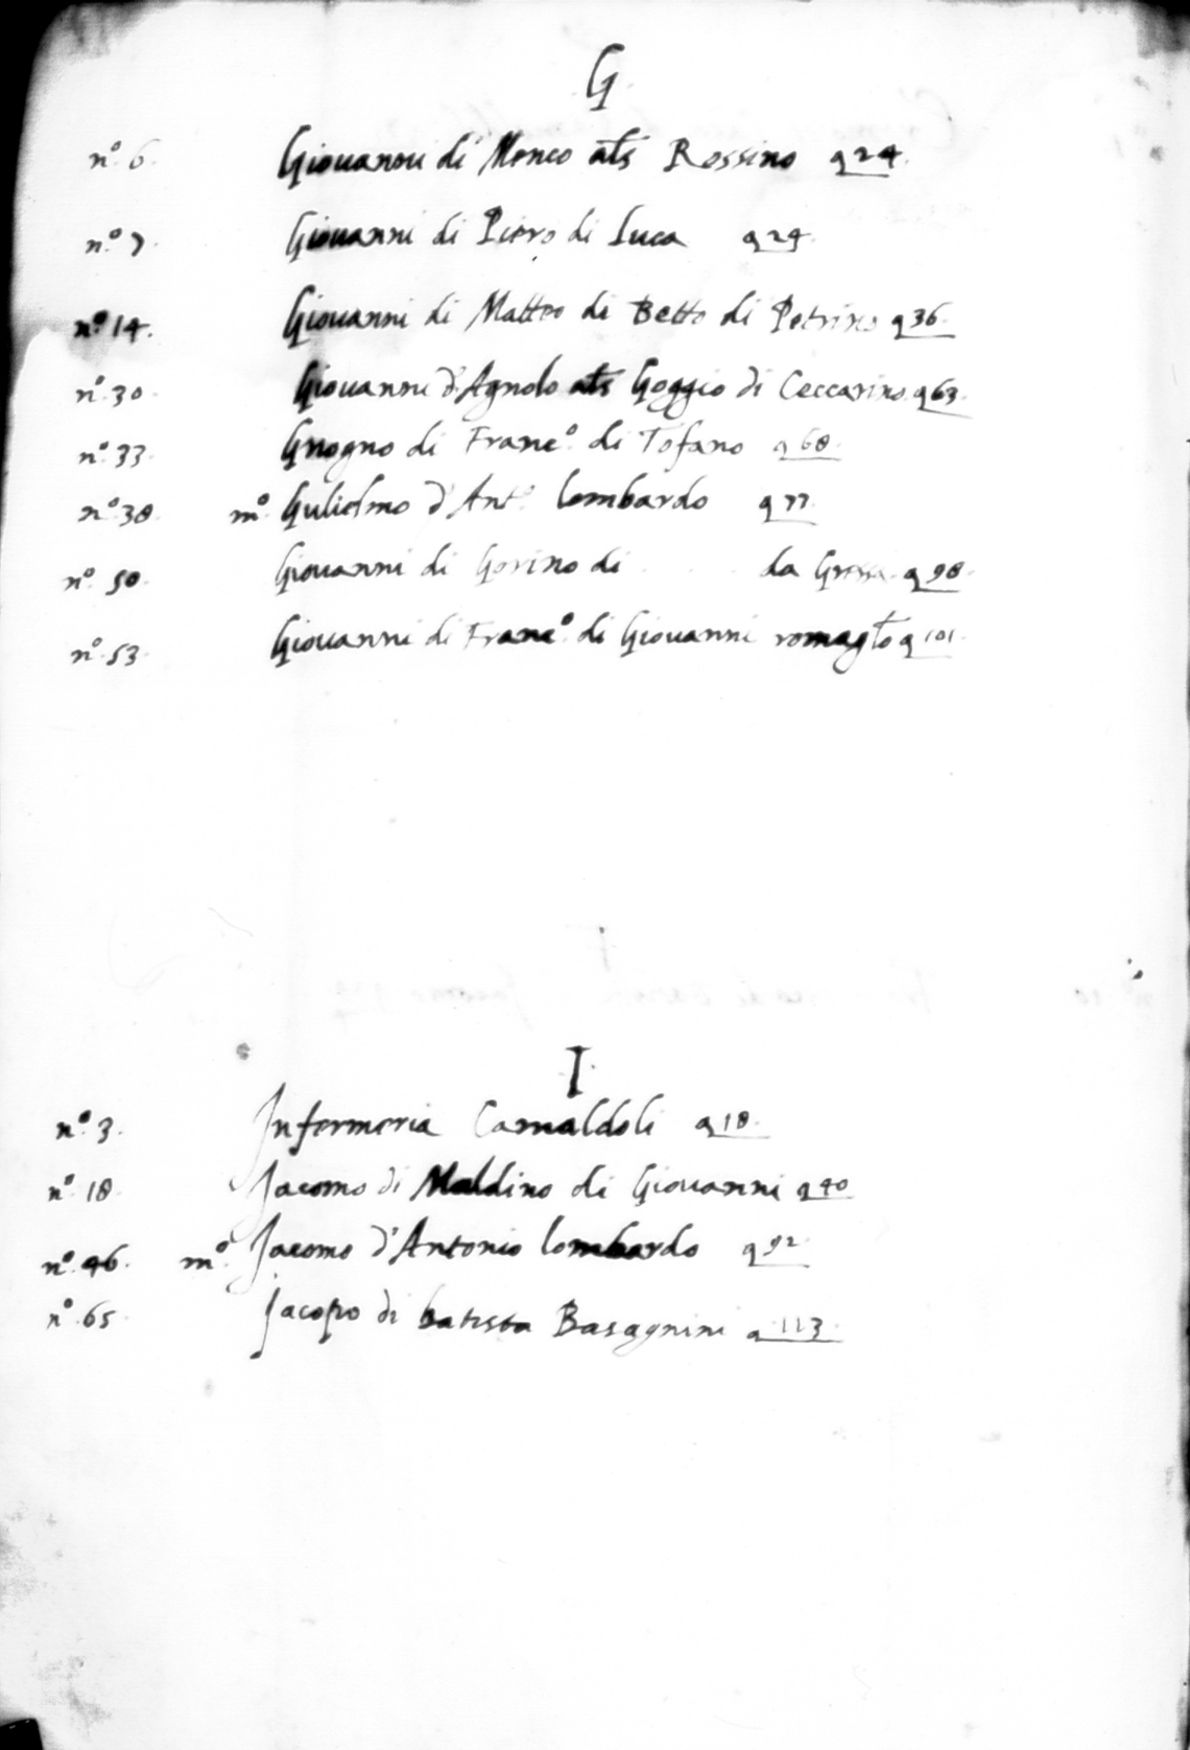 G
nº 6. Giouanni di Menco als Rossino a 24.
nº 7. Giouanni di Piero di Luca a 24.
nº 14. Giouanni di Matteo di Betto di Petrino a 36.
nº 30. Giouanni d'Agnolo als Goggio di Ceccarino a 63.
nº 33. Gnogno di Francº di Tofano a 68.
nº 38. mº Gulielmo d'Antº lombardo a 77.
nº 50. Giouanni di Gorino di da a 98.
nº 53. Giouanni di Francº di Giouanni a 101.
I
nº 3. Infermeria Camaldoli a 18.
nº 18. Jacomo di Maldino di Giouanni a 40
nº 46. mº Jacomo d'Antonio lombardo a 92.
nº 65. Jacopo di batista Basagnini a 113.